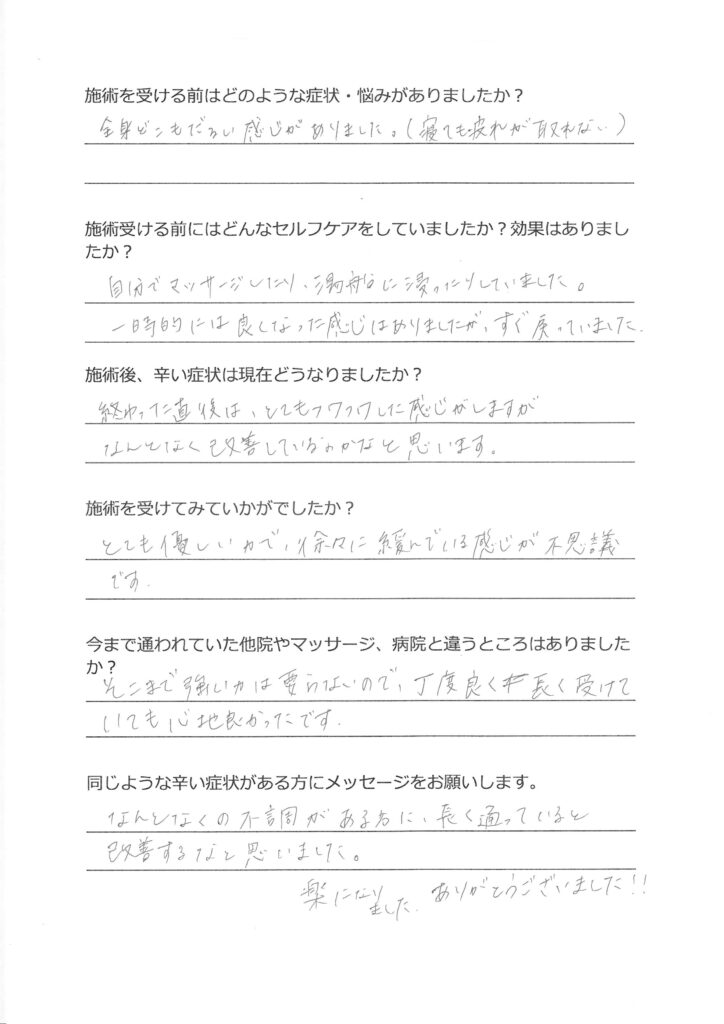 施術を受ける前はどのような症状・悩みがありましたか？
全身どこもだるい感じがありました。（寝ても疲れが取れない）
施術受ける前にはどんなセルフケアをしていましたか？効果はありまし
たか？
自分でマッサージしたり、湯船に浸ったりしていました。
一時的には良くなった感じはありましたが、すぐ戻っていました.
施術後、辛い症状は現在どうなりましたか？
終わった直後は、とてもフワフワした感じがしますが
なんとなく改善しているのかなと思います。
施術を受けてみていかがでしたか？
とても優しい力で、徐々に緩んでいる感じが不思議
です.
今まで通われていた他院やマッサージ、病院と違うところはありました
か？
そこまで強い力は要らないので、丁度良く長く受けて
いても心地良かったです.
同じような辛い症状がある方にメッセージをお願いします。
なんとなくの不調がある方に、長く通っていると
改善するなと思いました。
楽になり
ました. ありがとうございました!!